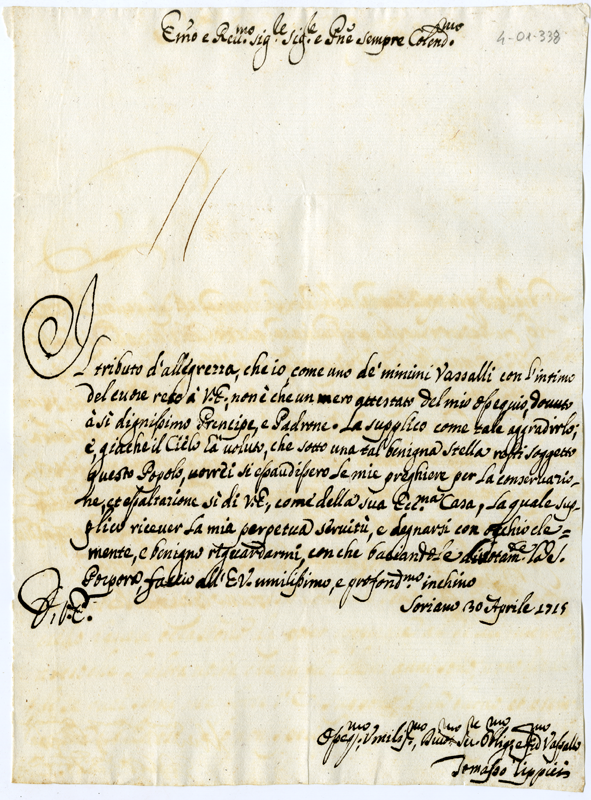 Em̃o e Rev.mo Sig.re Sig.re e Pñe sempre Colend.mo
4-01-338
Il tributo d'allegrezza, che io come uno de' minimi Vassalli con l'intimo
del cuore reco à V.E., non è che un mero attestato del mio ossequio, dovuto
à sì dignissimo Prencipe, e Padrone. La supplico come tale aggradirlo;
e, giache il Cielo l'à voluto, che sotto una tal benigna stella resti soggetto
questo Popolo, vorrei si esaudissero le mie preghiere per la conservazio-
ne, et esaltazione sì di V.E., come della sua Ecc.ma Casa, la quale sup-
plico ricever la mia perpetua servitù, e degnarsi con occhio cle-
mente, e benigno riguardarmi, con che baciandole la S.
Porpora, faccio all'E.V. umilissimo, e profond.mo inchino
Soriano 30 Aprile 1715
Di V.E.
Osseq.mo Umilis.mo, Divot.mo Se.re Oblig.mo ed Vassallo
Tomasso